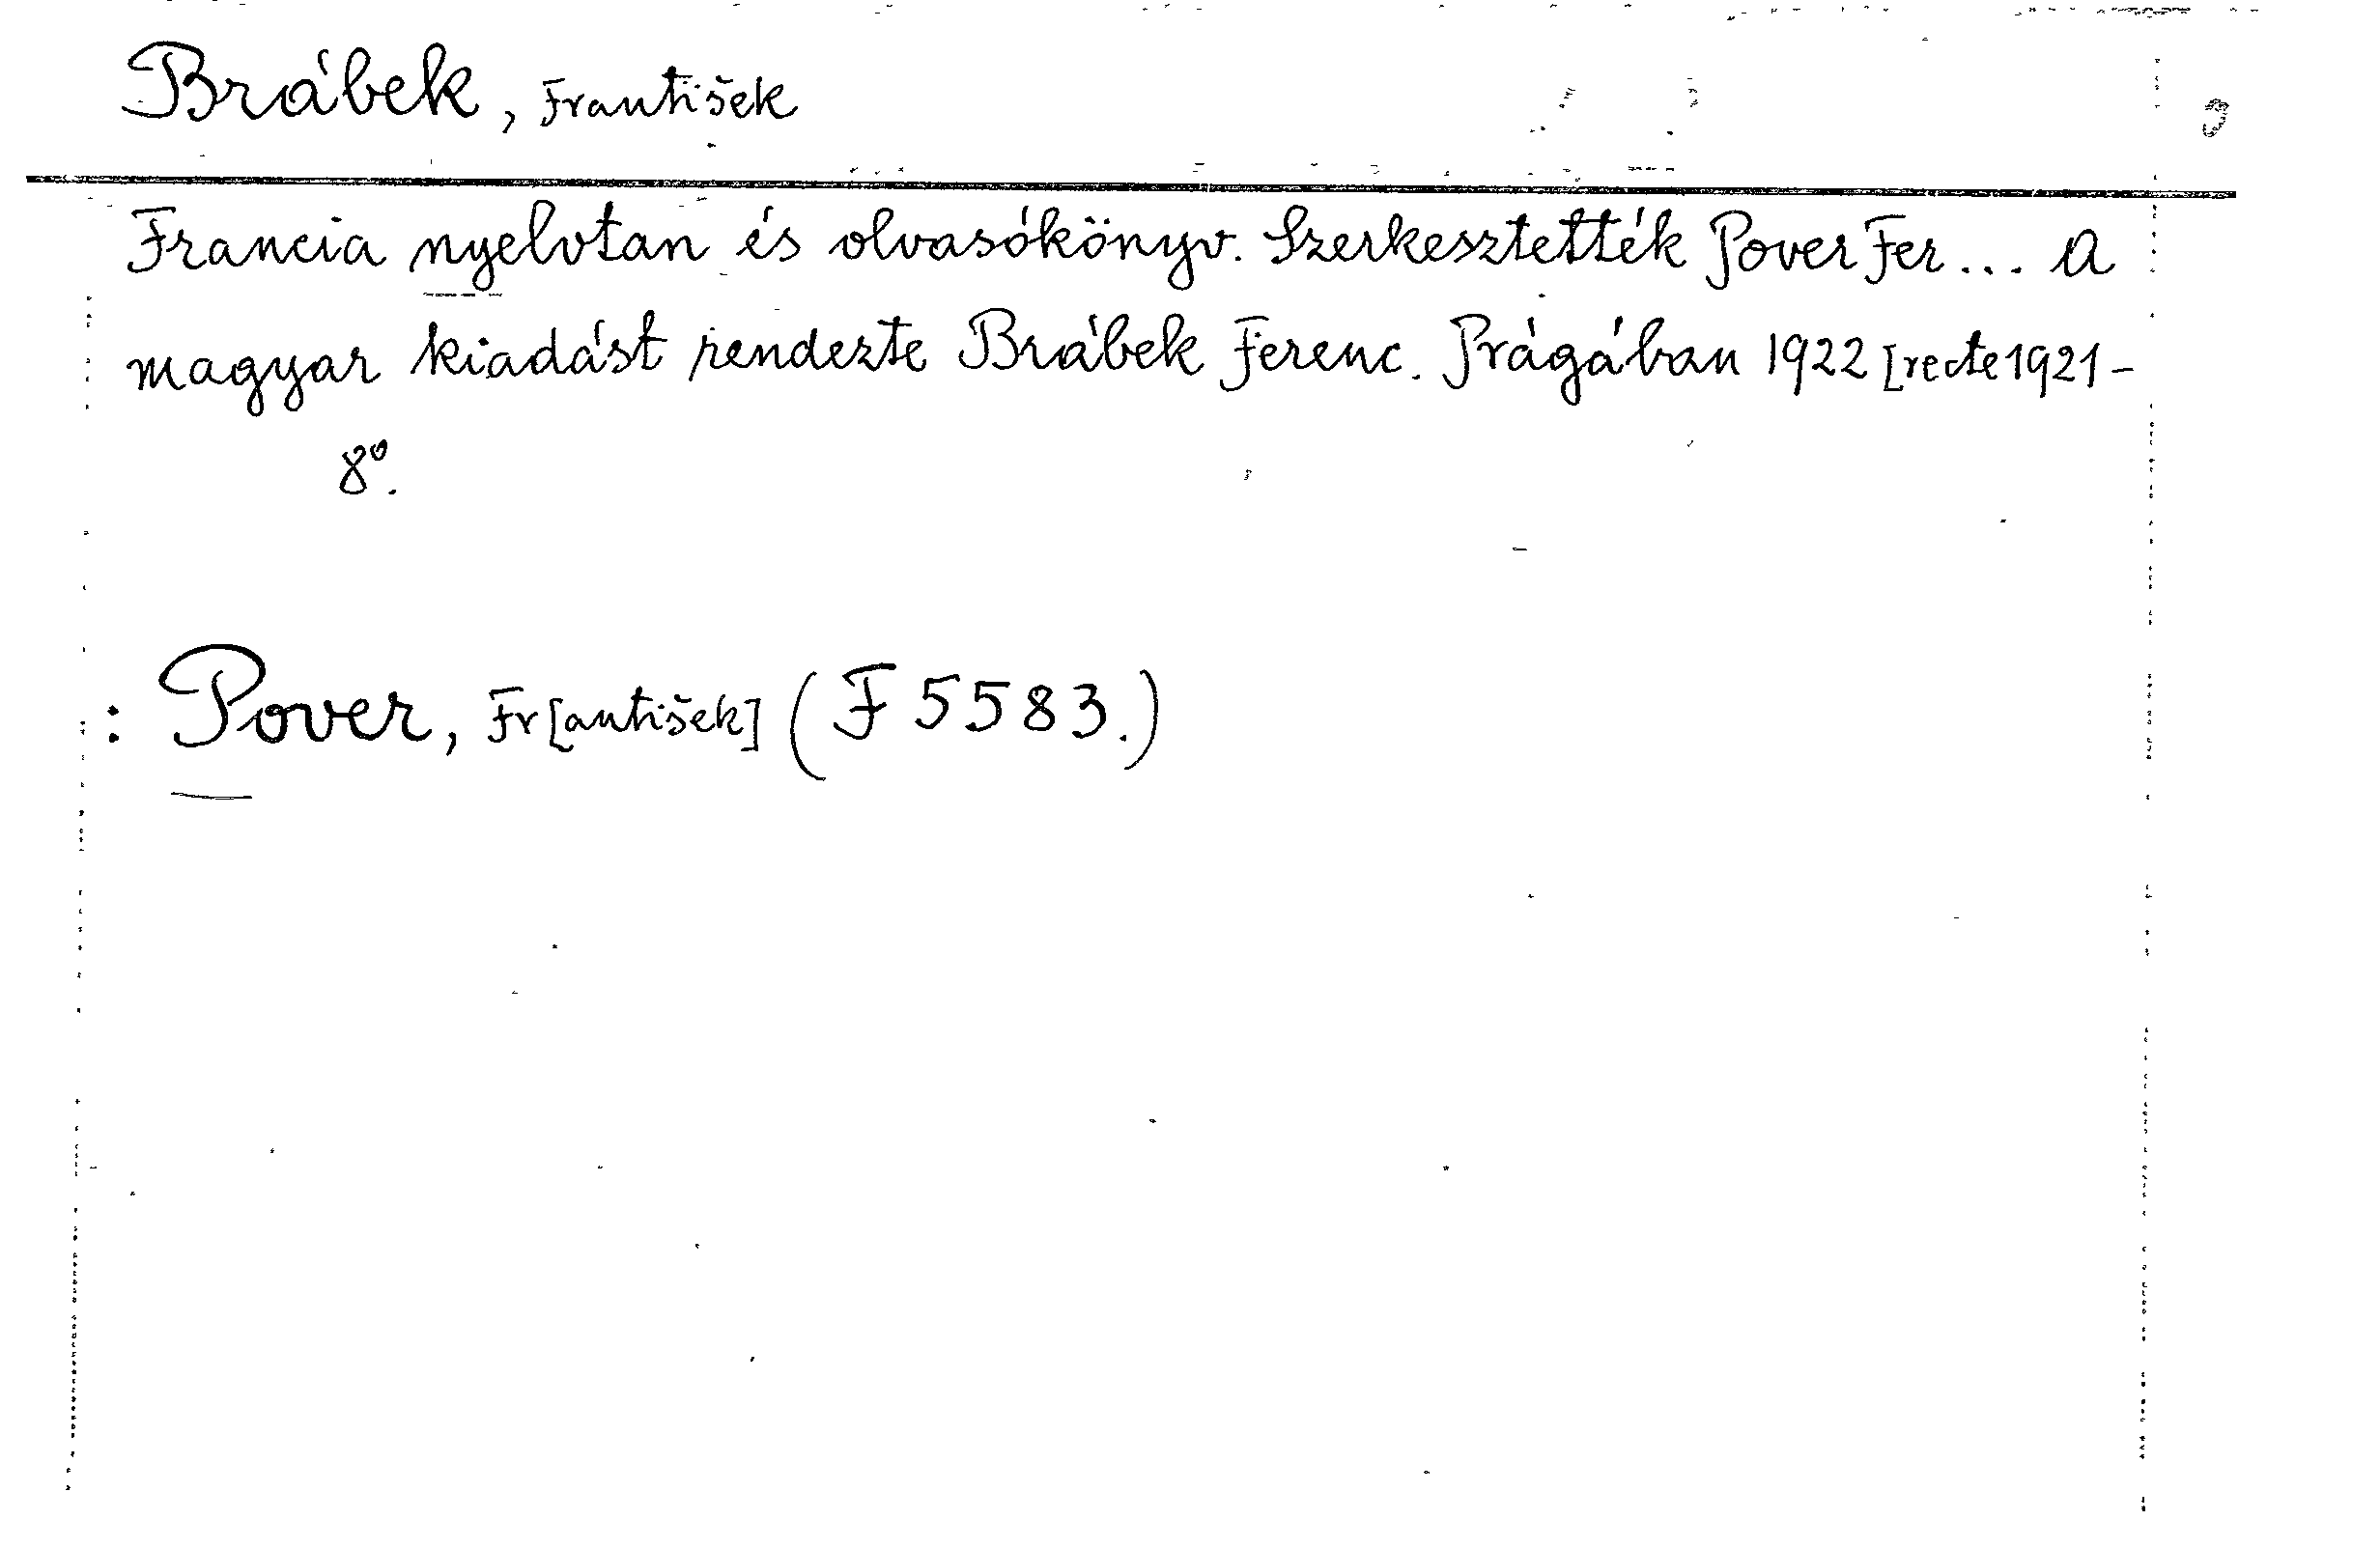 Brábek, František
Francia nyelvtan és olvasókönyv. Szerkesztették Pover Fer... A
magyar kiadást rendezte Brábek Ferenc. Prágában 1922 [recte 1921-
8°.
: Pover, Fr[antišek] (F 5583.)